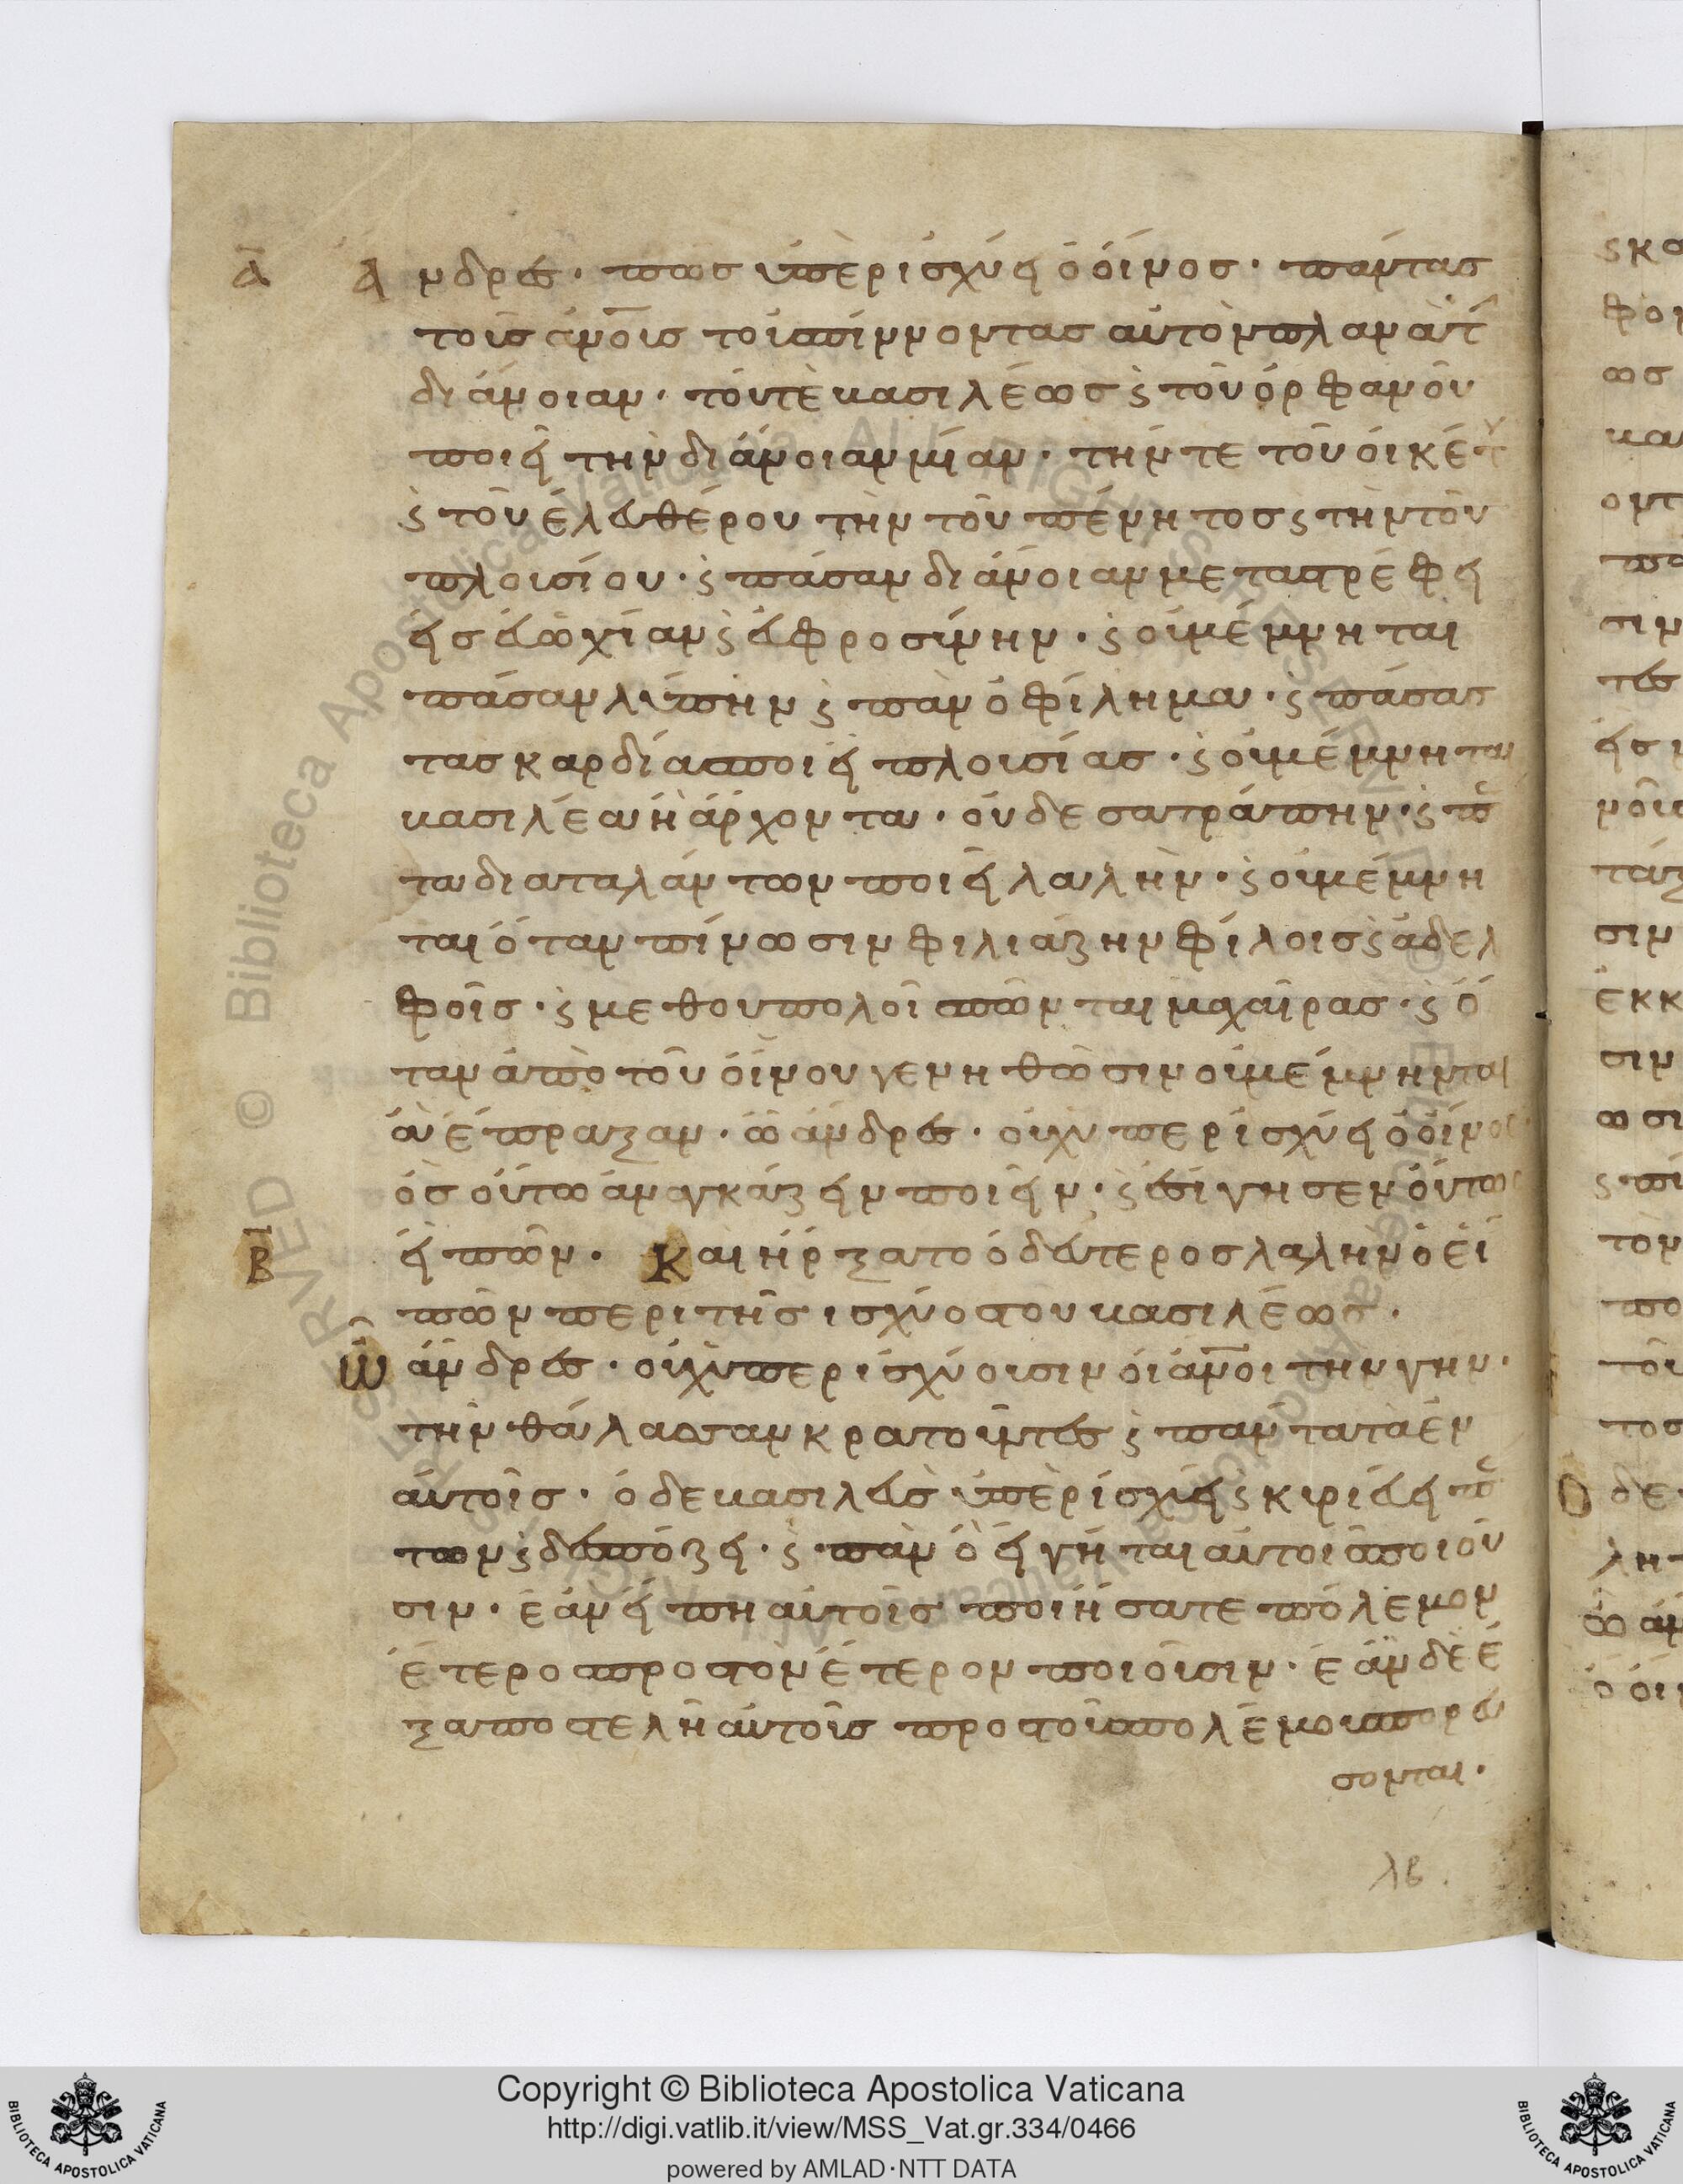 Α Ανδρες· πῶς ὑπὲρισχύει ὁ οἶνος· πάντας
τοῦς ἀν̅ο̅υς τοὺσπίνοντας αὐτὸν πλανᾶτ
διάνοιαν· τόυτὲ βασιλέως ς̀ τοῦ ὀρφανοῦ
ποιεῖ τὴν διάνοιαν μίαν· τήν τε τοῦ οἰκέτ
ς̀ τοῦ ἐλευθέρου τὴν τοῦ πένητος ς τὴν τοῦ
πλουσίου· ς̀ πάσαν διάνοιαν μεταστρέφει
εἰς εὐωχίαν ς̀ εὐφροσύνην· ς̀ οὐμέμνηται
πάσαν λύπην ς̀ πὰν ὀφίλημα· ς̀ πάσας
τας καρδίασποιεῖ πλουσίας· ς̀ οὐμέμνηται
βασιλέα ἢ ἄρχοντα· οὐδε σατράπην· ς̀ π
τα διαταλάντων ποιεῖ λαλὴν· ς̀ οὐμέμνη
ται ὅταν πίνωσιν φιλιάζην φίλοις ς̀ ἀδελ
φοῖς· ς̀ μεθουπολοῖ σπῶνται μαχαῖρας· ς̀ ὅ
ταν ἀπὸ τοῦ οἴνου γενηθῶσιν οὐμέμνηνται
ἃ ἔπραξαν· ὦ ἄνδρες· οὐχ ὑπερισχύει ὁ οἶνος·
ὃς οὕτω ἀναγκάζειν ποιεῖν· ς̀ ἐσίγησεν οὕτως
εἰπῶν. Β Καὶ ἤρξατο ὁ δεύτερος λαλῆν ὁ εἰ
πῶν περι τῆς ισχύοστου βασιλέως.
Ω ἄνδρες· οὐχ̓ ὑπερισχύουσιν οἱ ἀν̅οι την γην·
τὴν θάλασσαν κρατοῦντες ς̀ πάντα τὰ ἐν
αὐτοῖς· ὁ δε βασιλεὺς ὑπὲρισχύει ς̀ κυριεύει π
των ς̀ δεσπόζει· ς̀ πὰν ὃ εἰγήται αὐτοῖσποιοῦ
σιν· ἐὰν εἴπη αὐτοῖς ποιήσατε πόλεμον
ἕτεροσπροστὸν ἕτερον ποιοῦσιν· ἐὰν δὲ ἐ
ξαποστελῆ αὐτοῦς προστοὺσπολέμουσπορεύ
σονται·
λβ.
Copyright © Biblioteca Apostolica Vaticana
http://digi.vatlib.it/view/MSS_Vat.gr.334/0466
powered by AMLAD·NTT DATA